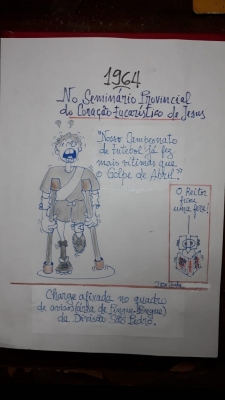 1964
No Seminário Provincial
do Coração Eucarístico de Jesus
"Nosso Campeonato
de Futebol já fez
mais vítimas que
o Golpe de Abril."
O Reitor
ficou
uma fera!
Charge afixada no quadro
de avisos (área de Pingue-Pongue)
da Divisão São Pedro.